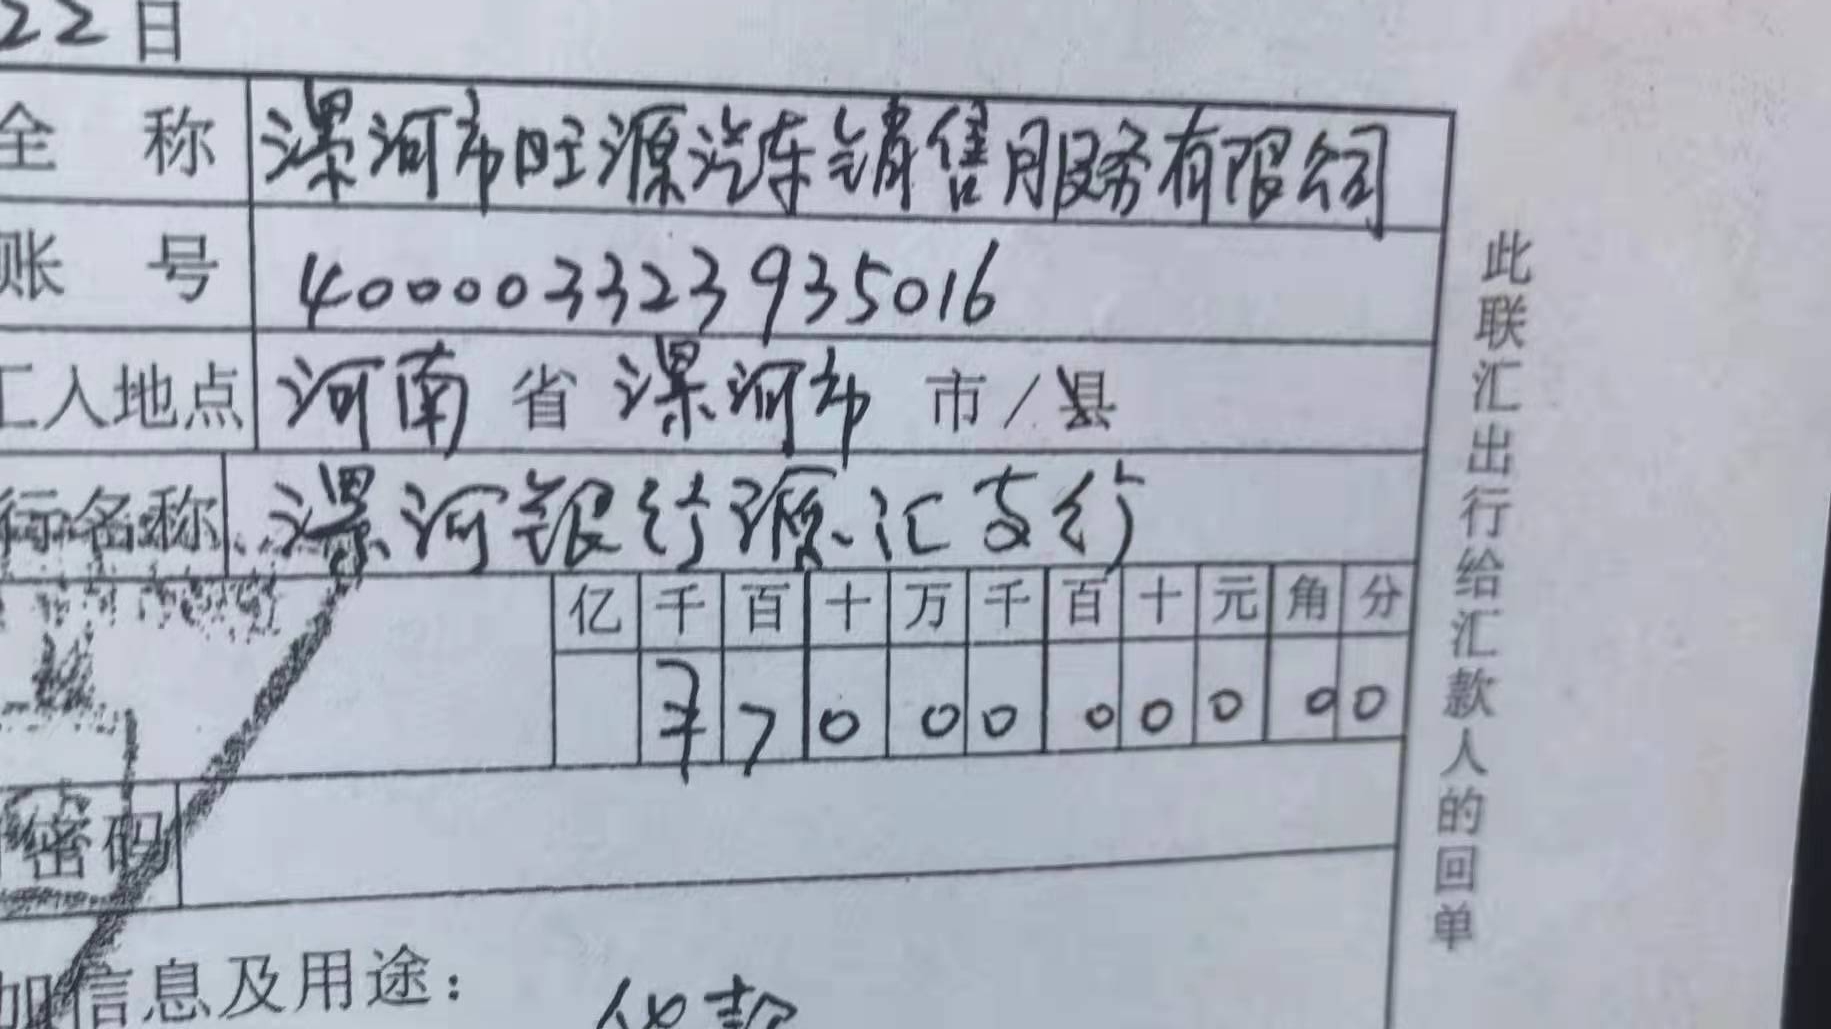 22日
全 称 漯河市旺源汽车销售服务有限公司
账 号 400003323935016
汇入地点 河南 省 漯河市 市/县
行名称 漯河银行源汇支行
亿 千 百 十 万 千 百 十 元 角 分
¥ 7 0 0 0 0 0 0 0 0
密码
加信息及用途：
此联汇出行给汇款人的回单